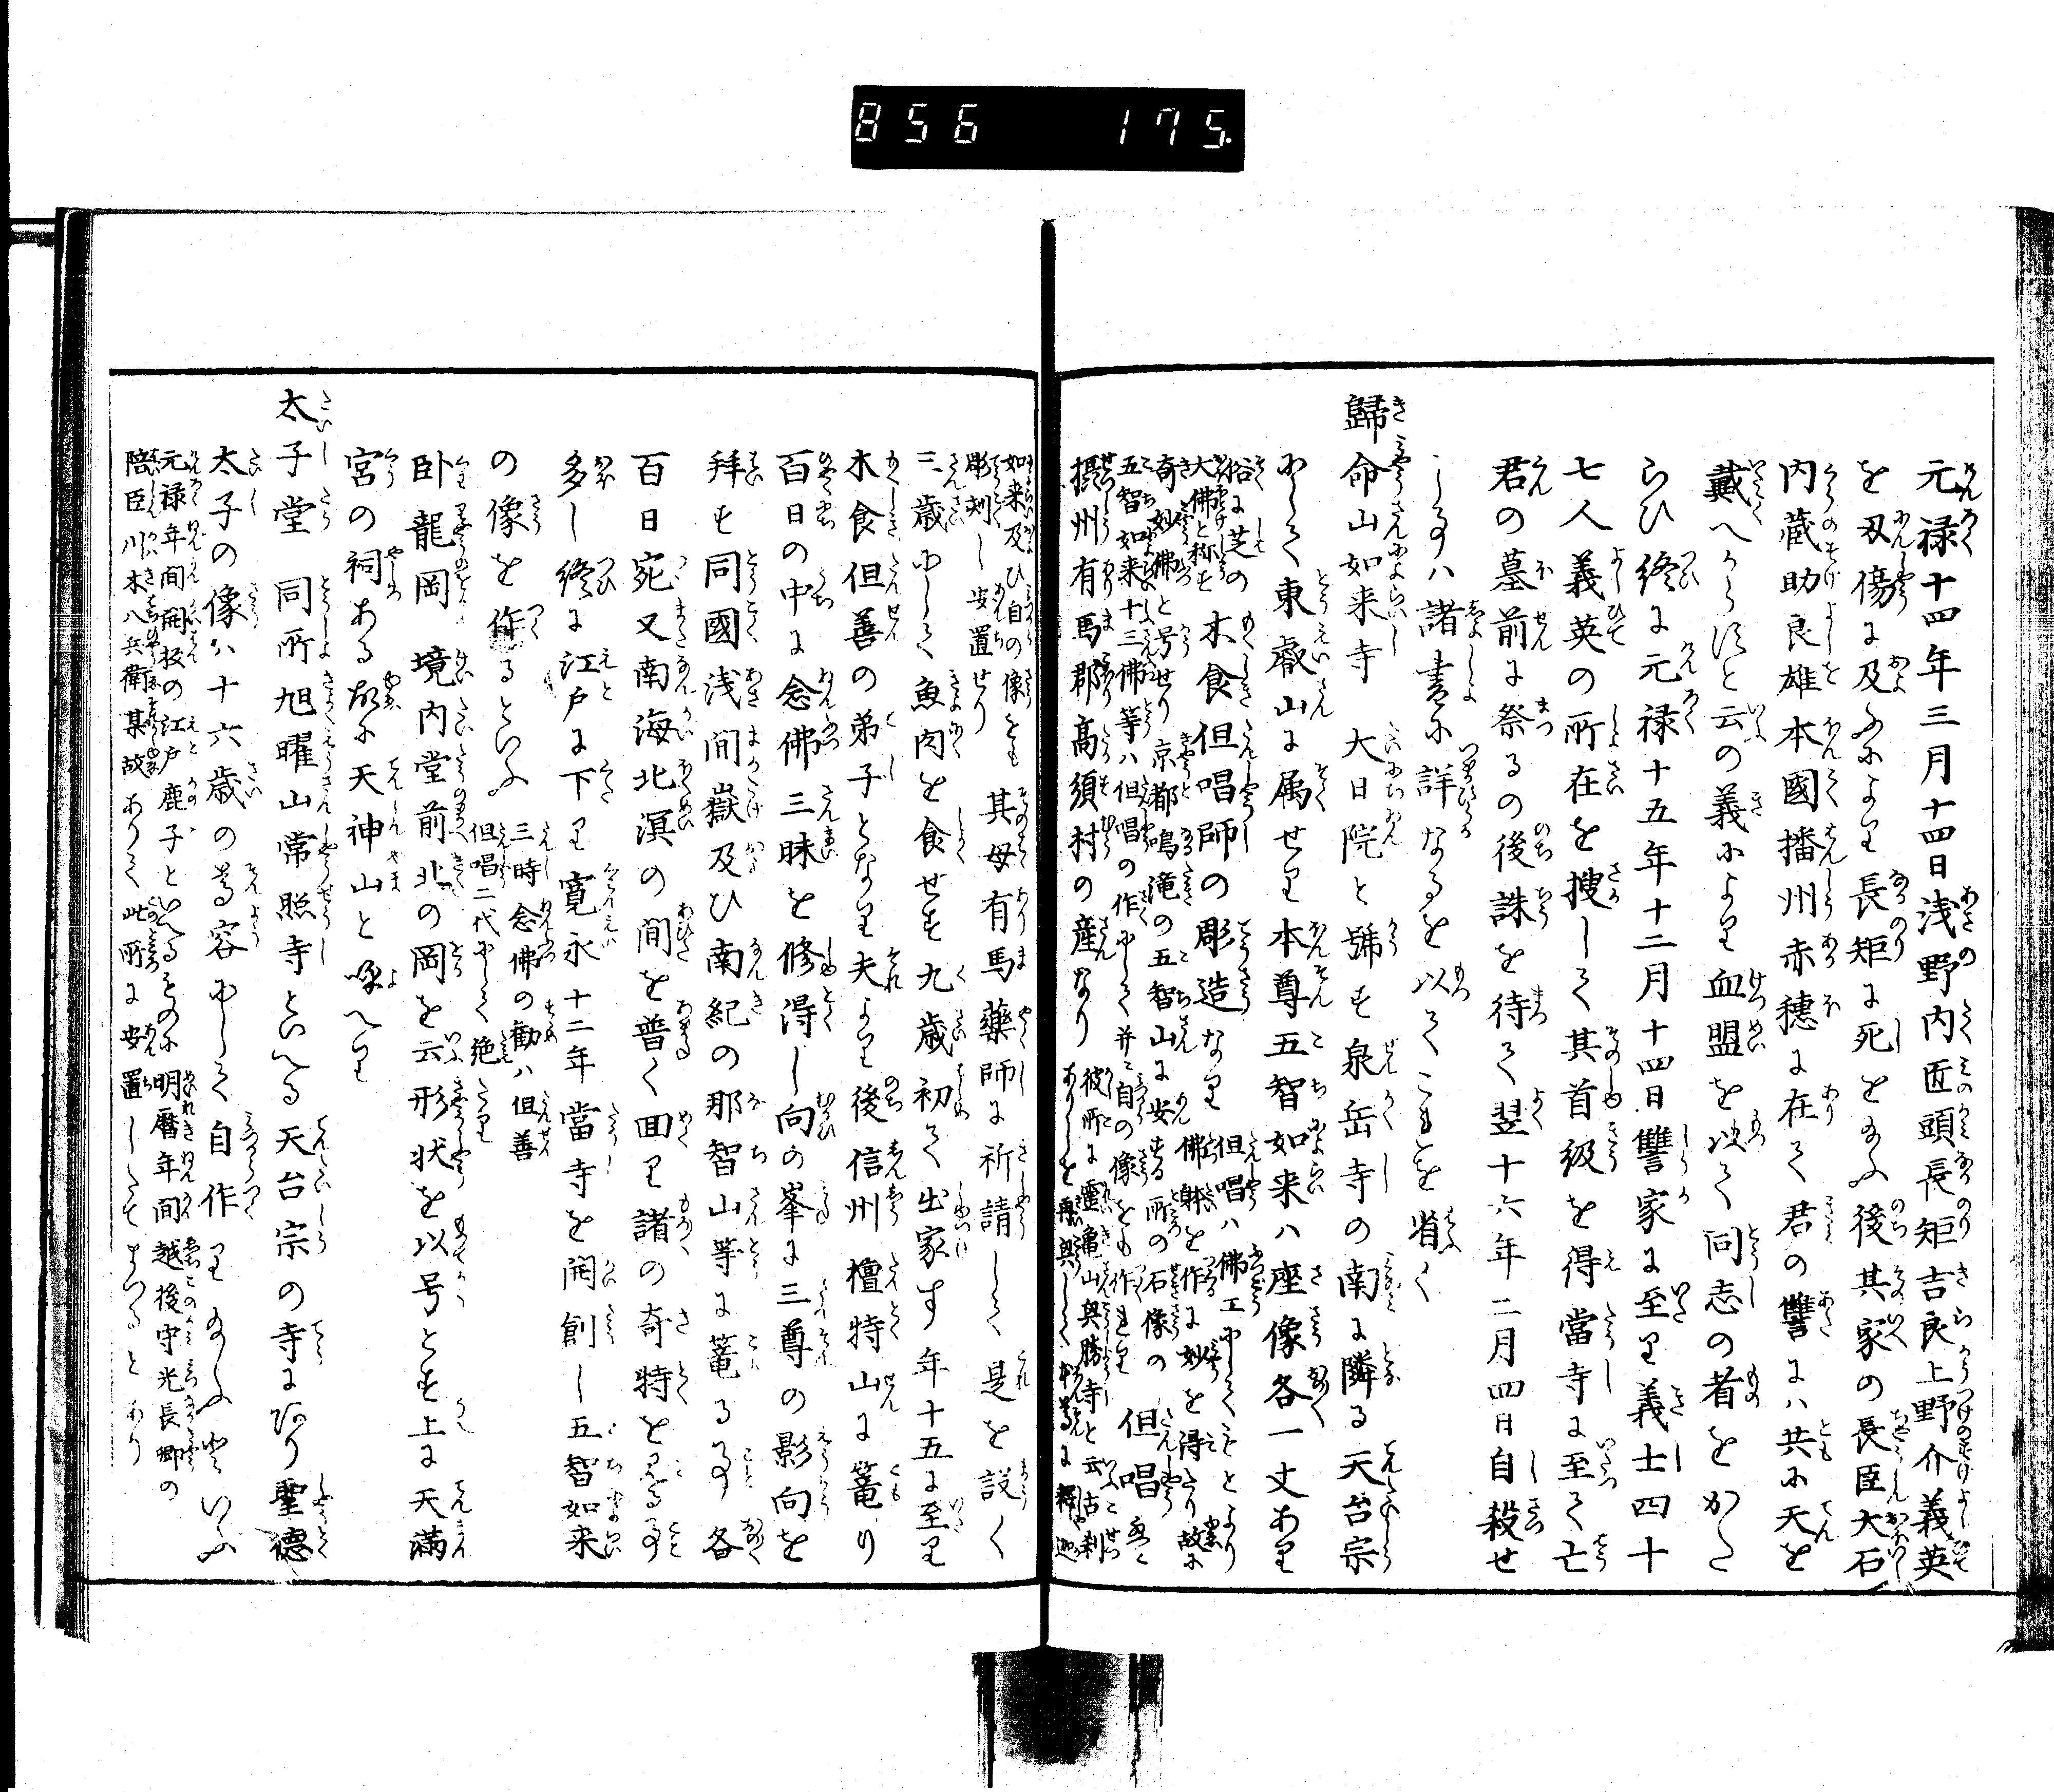 856 175
元禄十四年三月十四日浅野内匠頭長矩吉良上野介義英
を刄傷に及ふによりて長矩に死を給ふ後其家の長臣大石
内蔵助良雄本國播州赤穂に在て君の讐にハ共に天を
戴へからすと云の義により血盟を以て同志の者をかた
らひ終に元禄十五年十二月十四日讐家に至り義士四十
七人義英の所在を搜して其首級を得當寺に至て亡
君の墓前に祭るの後誅を待て翌十六年二月四日自殺せ
し事ハ諸書に詳なるを以てこれを省く
歸命山如来寺 大日院と號す泉岳寺の南に隣る天台宗
にして東叡山に属せり本尊五智如来ハ座像各一丈あり
俗に芝の大佛と称す 木食但唱師の彫造なり 但唱ハ佛工にしてもとより佛躰を作に妙を得たり故に
奇妙佛と号せり京都鳴滝の五智山に安する所の石像の五智如来十三佛等ハ但唱の作にして并に自の像をも作れり 但唱
摂州有馬郡高須村の産なり 彼所に靈亀山興勝寺と云古刹ありしを再興して本尊に釋迦
如来及ひ自の像をも彫刻し安置せり 其母有馬藥師に祈請して是を設く
三歳にして魚肉を食せす九歳初て出家す年十五に至り
木食但善の弟子となり夫より後信州檀特山に篭り
百日の中に念佛三昧を修得し向の峯に三尊の影向を
拜す同國浅間嶽及ひ南紀の那智山等に篭る事各
百日宛又南海北溟の間を普く回り諸の奇特を見る事
多し終に江戸に下り寛永十二年當寺を開創し五智如来
の像を作るといふ 三時念佛の勧ハ但善但唱二代にして絶たり
卧龍岡 境内堂前北の岡を云形状を以号とす上に天満
宮の祠ある故に天神山と呼へり
太子堂 同所旭曜山常照寺といへる天台宗の寺にあり聖德
太子の像ハ十六歳の尊容にして自作りたまふといふ
元禄年間開板の江戸鹿子といへるものに明暦年間越後守光長卿の
陪臣川木八兵衛某故ありて此所に安置したてまつるとあり